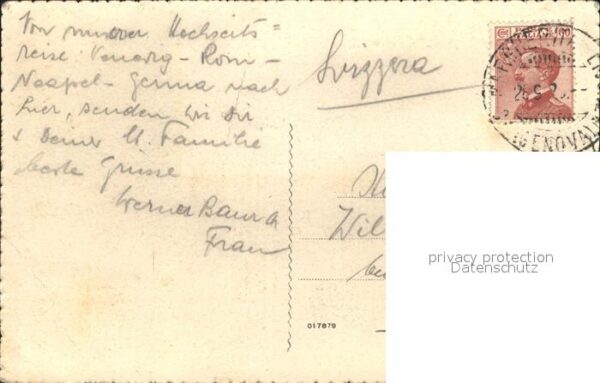 Von unserer Hochzeits=
reise Venedig - Rom -
Neapel - Genua nach
hier, senden wir Dir
& Deiner lb. Familie
beste Grüsse
Werner Baur &
Frau
Svizzera
60
GENOVA
Wil
privacy protection
Datenschutz
017879